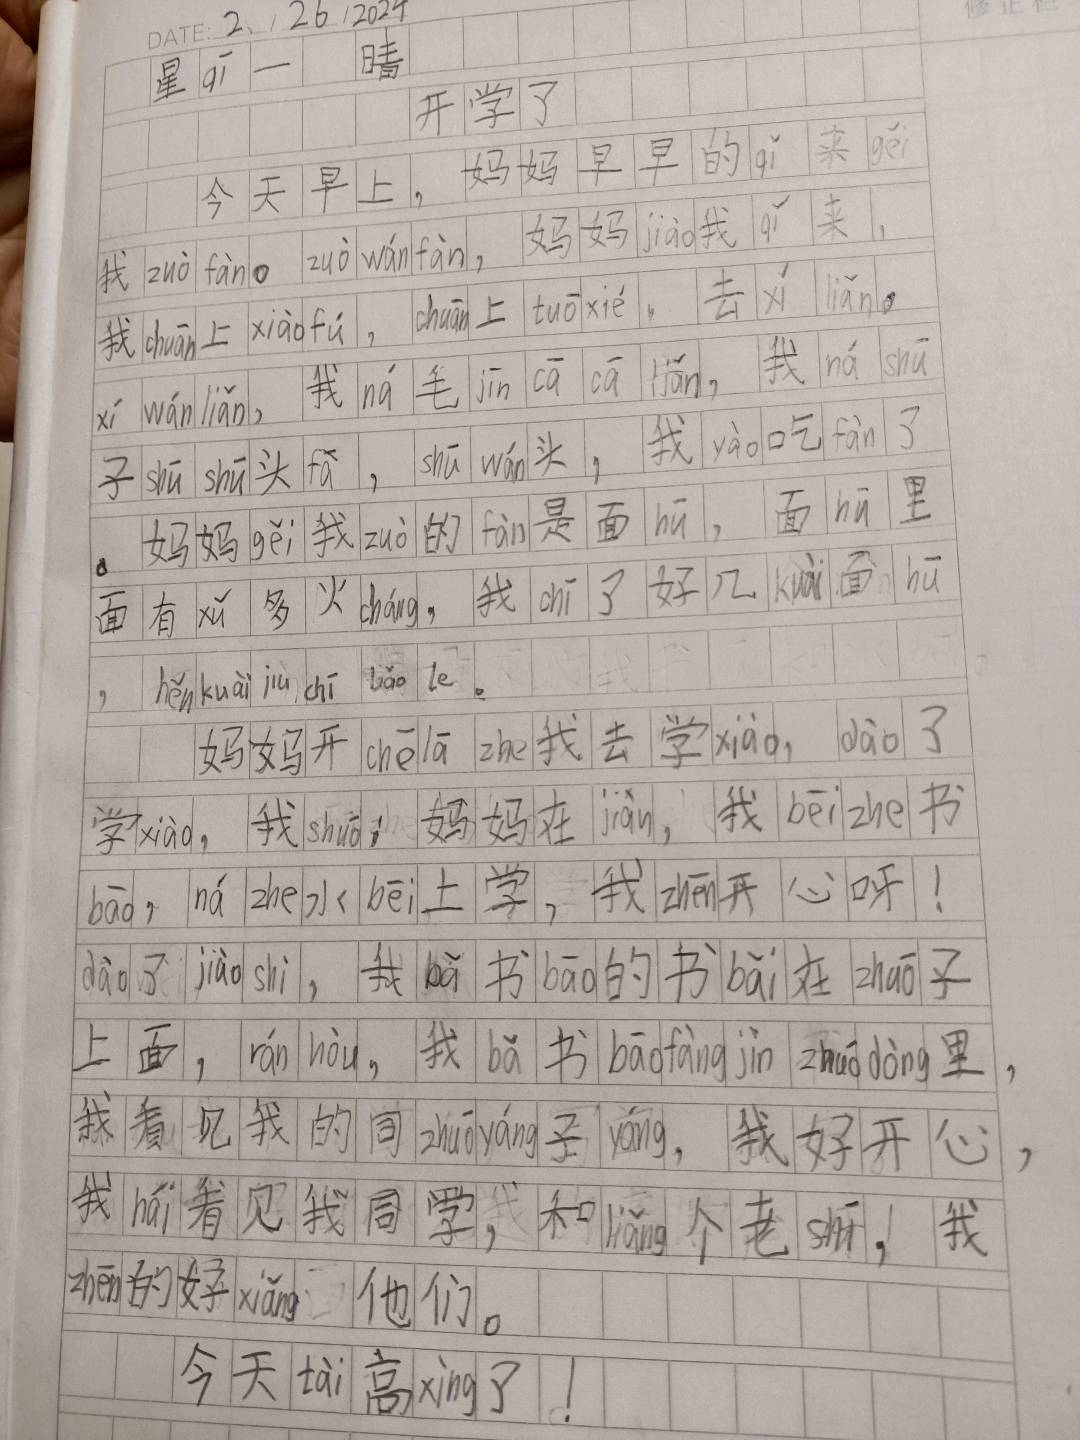 DATE: 2. / 26 / 2024
星 qī 一 晴
开学了
今天早上，妈妈早早的 qǐ 来 gěi
我 zuò fàn。zuò wán fàn，妈妈 jiào 我 qǐ 来，
我 chuān 上 xiào fú，chuān 上 tuō xié，去 xí liǎn。
xí wán liǎn，我 ná 毛 jīn cā cā liǎn，我 ná shū
子 shū shū 头 fǎ，shū wán 头，我 yào 吃 fàn 了
。妈妈 gěi 我 zuò 的 fàn 是面 hū，面 hū 里
面有 xǔ 多火 cháng，我 chī 了好几 kuài 面 hū
，hěn kuài jiù chī bǎo le。
妈妈开 chē lā zhe 我去学 xiào，dào 了
学 xiào，我 shuō，妈妈在 jiàn，我 bēi zhe 书
bāo，ná zhe 水 bēi 上学，我 zhēn 开心呀！
dào 了 jiào shì，我 bǎ 书 bāo 的书 bǎi 在 zhuō 子
上面，rán hòu，我 bǎ 书 bāo fàng jìn zhuō dòng 里，
我看见我的同 zhuō yáng 子 yáng，我好开心，
我 hái 看见我同学，和 liǎng 个老 shī，我
zhēn 的好 xiǎng 他们。
今天 tài 高 xìng 了！